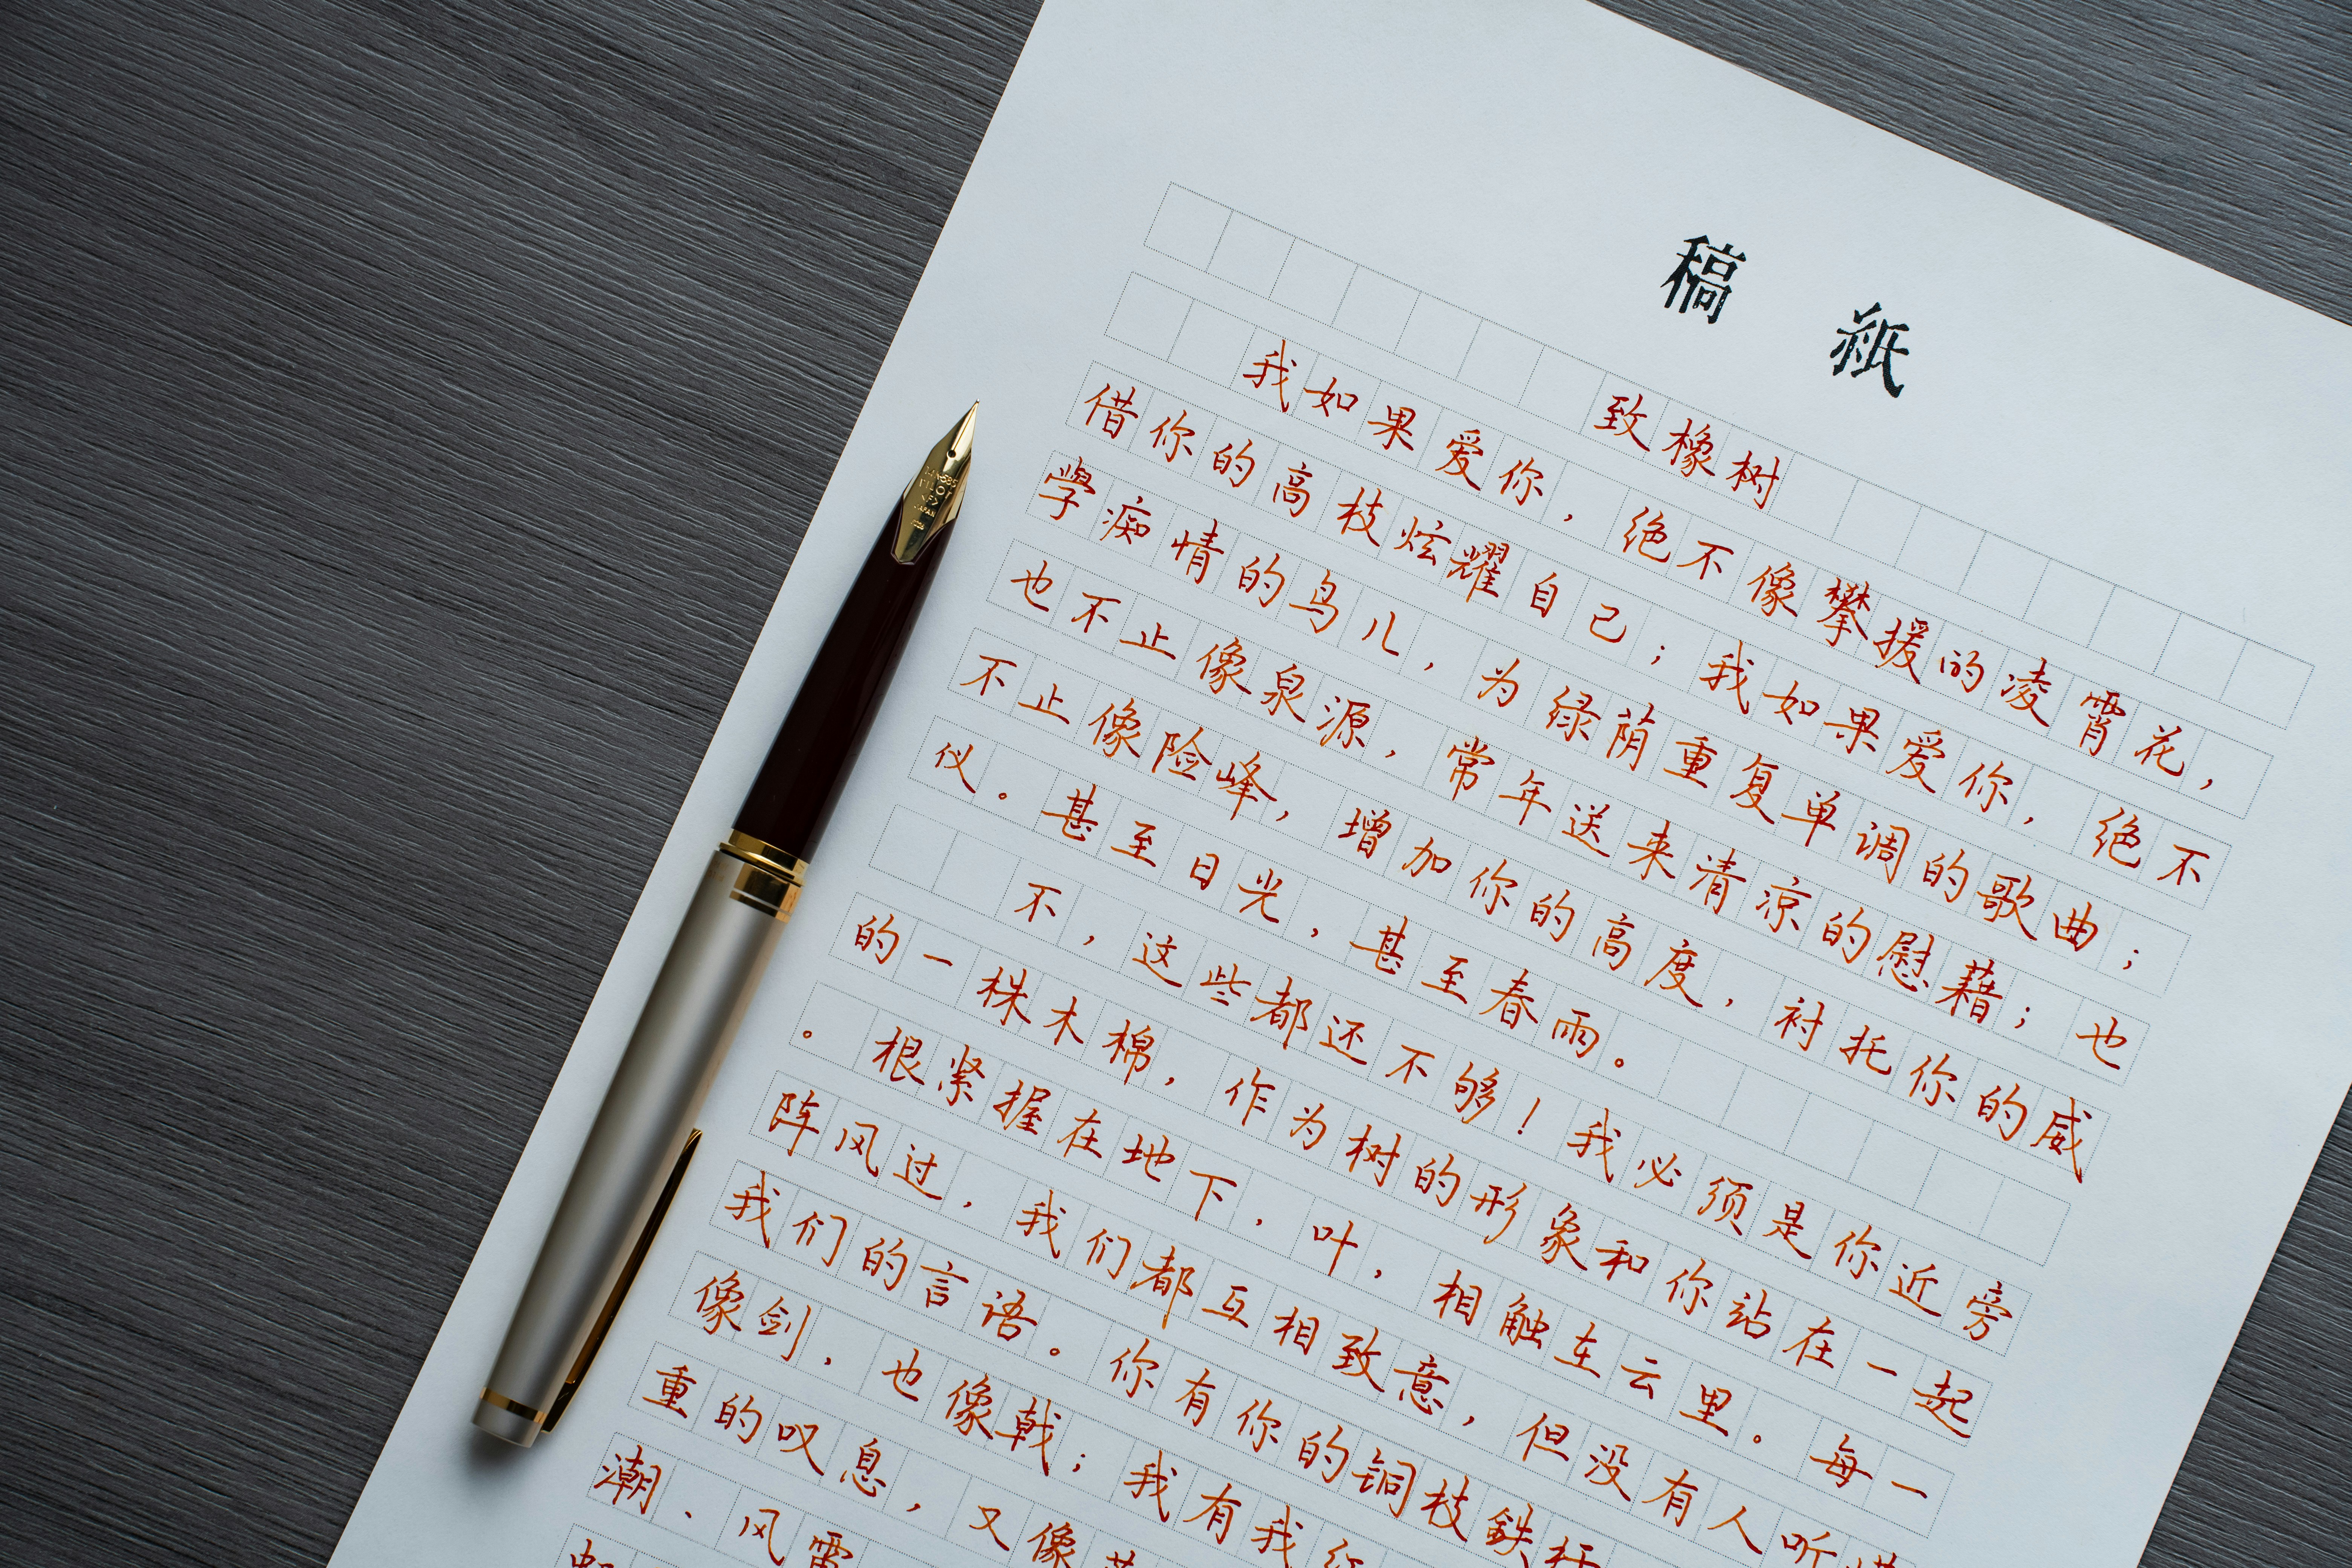 稿 紙
致橡树
我如果爱你，绝不像攀援的凌霄花，
借你的高枝炫耀自己；我如果爱你，绝不
學痴情的鸟儿，为绿荫重复单调的歌曲；
也不止像泉源，常年送来清凉的慰藉；也
不止像险峰，增加你的高度，衬托你的威
仪。甚至日光，甚至春雨。
不，这些都还不够！我必须是你近旁
的一株木棉，作为树的形象和你站在一起
。根紧握在地下，叶，相触在云里。每一
阵风过，我们都互相致意，但没有人听
我们的言语。你有你的铜枝鉄
像剑，也像戟；我有我
重的叹息，又像
潮、风雷
PILOT
JAPAN